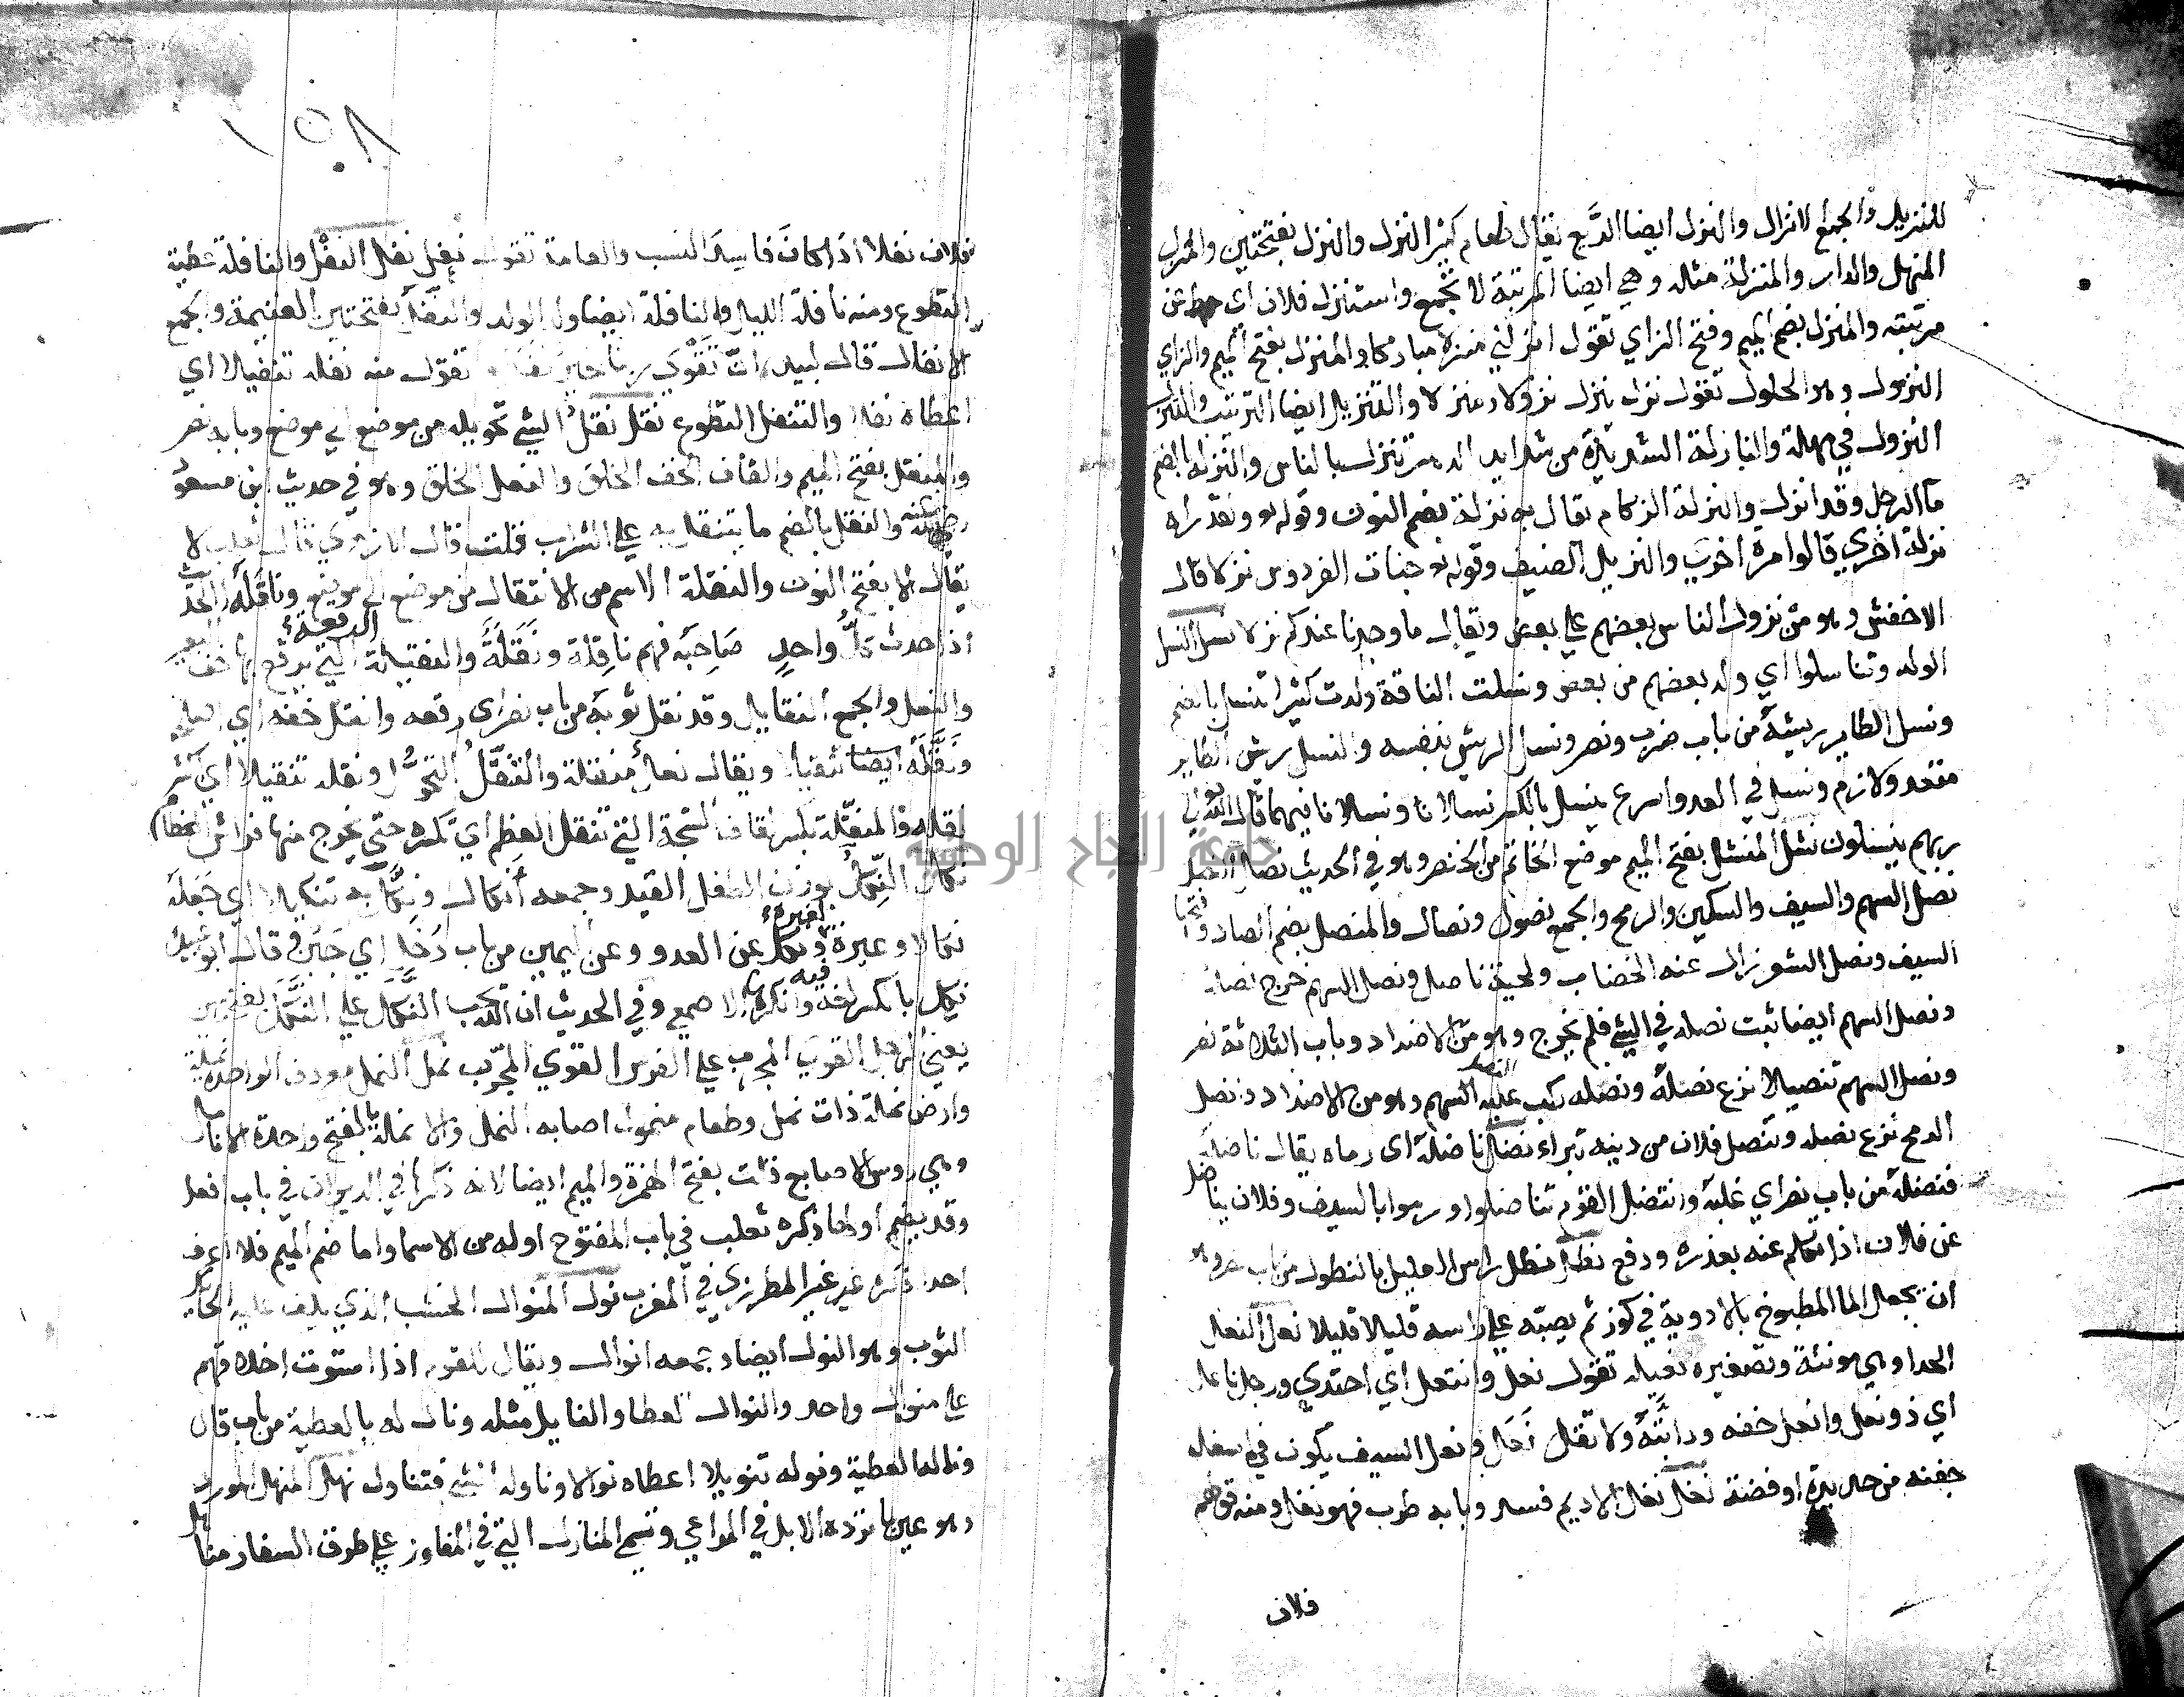 للنزيل والجمع الانزال والنزل ايضا الريع يقال طعام كثير النزل والنزل بفتحتين والمنزل
المنهل والدار والمنزلة مثله وهي ايضا المرتبة لا تجمع واستنزل فلان اى حط عن
مرتبته والمنزل بضم الميم وفتح الزاي تقول انزلني منزلا مباركا والمنزل بفتح الميم والزاي
النزول وهو الحلول تقول نزل ينزل نزولا ومنزلا والتنزيل ايضا الترتيب والتنزل
النزول في مهلة والنازلة الشديدة من شدايد الدهر تنزل بالناس والنزاله بالضم
ما الرجل وقد انزل والنزلة الزكام يقال به نزلة بضم النون وقوله تع ولقد راه
نزلة اخرى قالوا مرة اخرى والنزيل الضيف وقوله تع جنات الفردوس نزلا قال
الاخفش وهو من نزول الناس بعضهم علي بعض ويقال ما وجدنا عندكم نزلا نسل النسل
الولد وتناسلوا اي ولد بعضهم من بعض ونسلت الناقة ولدت كثيرا تنسل بالضم
ونسل الطاير ريشه من باب ضرب ونصر ونسل الريش بنفسه والنسل ريش الطاير
متعد ولازم ونسل في العدو اسرع ينسل بالكسر نسلا ونسلانا فيهما قال الله تع الي
ربهم ينسلون نشل المنشل بفتح الميم موضع الخاتم من الخنصر وهو في الحديث نصل النصل
نصل السهم والسيف والسكين والرمح والجمع نصول ونصال والمنصل بضم الصاد وفتحها
السيف ونصل الشعر زال عنه الخضاب ولحية ناصل ونصل السهم خرج نصله
ونصل السهم ايضا ثبت نصله في الشي فلم يخرج وهو من الاضداد وباب الثلاثة نصر
ونصل السهم تنصيلا نزع نصله ونصله ركب عليه النصل السهم وهو من الاضداد وانصل
الرمح نزع نصله وتنصل فلان من دينه تبراء نضل ناضله اى رماه يقال ناضله
فنضله من باب نصر اي غلبه وانتضل القوم تناضلوا ورموا بالسيف وفلان يناضل
عن فلان اذا تكلم عنه بعذره ودفع نطل نطل راس العليل بالنطول من باب نصر وهو
ان يجعل الما المطبوخ بالادوية في كوز ثم يصبه علي راسه قليلا قليلا نعل النعل
الحذا وهي مونثة وتصغيره نعيله تقول نعل وانتعل اي احتذي ورجل ناعل
اي ذو نعل وانعل خفه ودابته ولا تقل نعل ونعل السيف يكون في اسفل
جفنه من حديدة او فضة نغل نغل الاديم فسد وبابه طرب فهو نغل ومنه قولهم
فلان
١٥٨
فلان نغلا اذا كان فاسد النسب والعامة تقول نغل نفل النفل والنافلة عطية
التطوع ومنه نافلة الليل والنافلة ايضا ولد الولد والنفل بفتحتين الغنيمة والجمع
الانفال قال لبيد ان تقوى ربنا خير نفل تقول منه نفله تنفيلا اي
اعطاه نفلا والتنفل التطوع نقل نقل الشي تحويله من موضع الي موضع وبابه نصر
والمنقل بفتح الميم والقاف الخف الخلق والنعل الخلق وهو في حديث ابن مسعود
والنقل بالضم ما يتنقل به علي الشراب قلت قال الازهري قال ثعلب لا
يقال الا بفتح النون والنقلة الاسم من الانتقال من موضع الي موضع وناقله الحديث
اذا حدث كل واحد صاحبه فهم ناقلة ونقلة والنقيلة الرقعة التي يرقع بها خف البعير
والنعل والجمع النقايل وقد نقل ثوبه من باب نصر اى رقعه وانقل خفه اي اصلحه
ونقله ايضا تنقيلا ويقال نعل منقلة والتنقل التحول ونقله تنقيلا اي اكثر
نقله والمنقلة بكسر القاف الشجة التي تنقل العظم اي تكسره حتي يخرج منها فراش العظام
نكل النكل بوزن الطفل القيد وجمعه انكال ونكل به تنكيلا اي جعله
نكالا وعبرة لغيره ونكل عن العدو وعن اليمين من باب دخل اي جبن قال ابو عبيد
نكل بالكسر لغة فيه وانكرها الاصمعي وفي الحديث ان الله يحب النكل علي النكل بفتحتين
يعني الرجل القوي المجرب علي الفرس القوي المجرب نمل النمل معروف الواحدة نملة
وارض نملة ذات نمل وطعام منمول اصابه النمل والانملة بالفتح واحدة الانامل
وهي روس الاصابع قلت بفتح الهمزة والميم ايضا لانه ذكرها في الديوان في باب افعل
وقد يضم اولها ذكره ثعلب في باب المفتوح اوله من الاسما واما ضم الميم فلا اعرف
احدا ذكره غير المطرزى في المغرب نول المنوال الخشب الذي يلف عليه الحايك
الثوب وهو النول ايضا وجمعه انوال ويقال للقوم اذا استوت اخلاقهم
علي منوال واحد والنوال العطا والنايل مثله ونال له بالعطية من باب قال
وناله العطية ونوله تنويلا اعطاه نوالا وناوله الشي فتناول نهل المنهل المورد
وهو عين ما ترده الابل في المراعي وتسمي المنازل التي في المفاوز علي طرق السفار مناهل